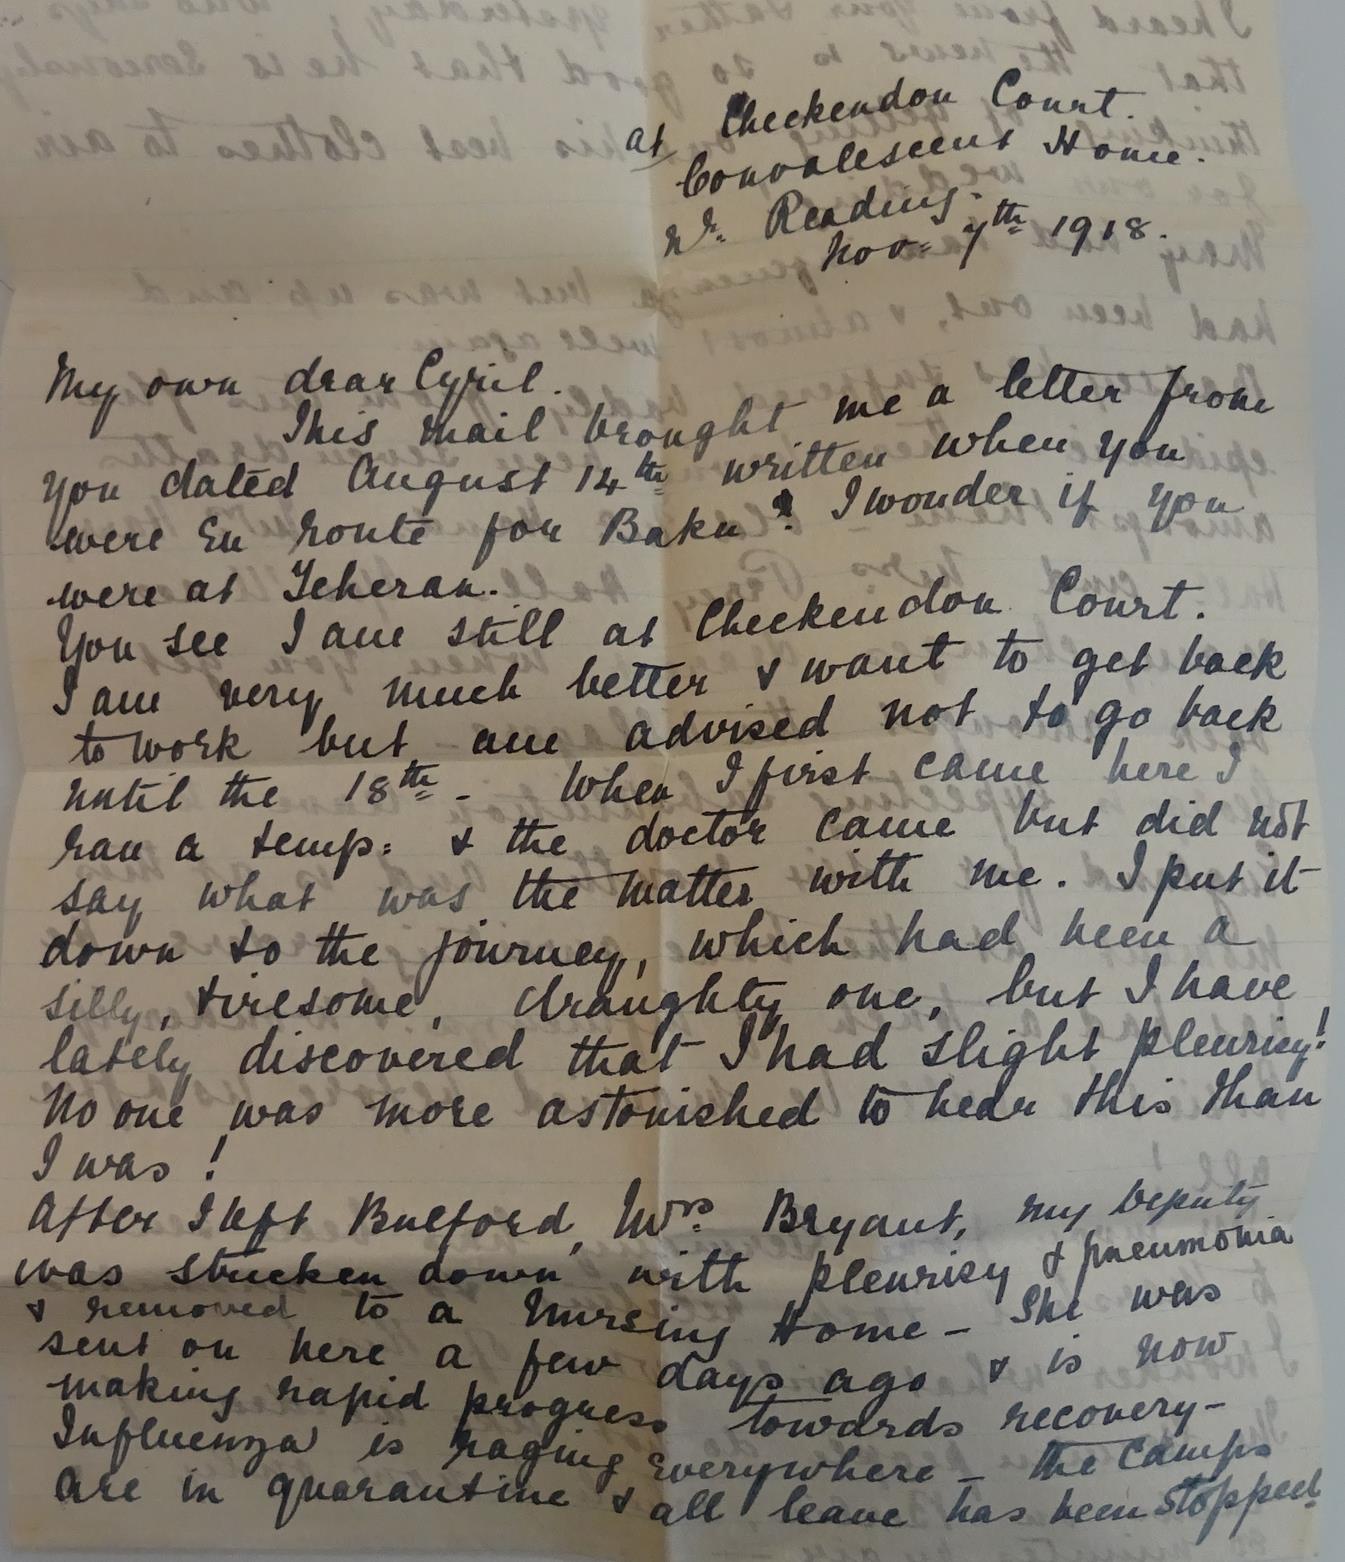 at Checkendon Court.
Convalescent Home.
Nr. Reading.
Nov= 7th 1918.
My own dear Cyril.
This mail brought me a letter from
you dated August 14th written when you
were En route for Baku? I wonder if you
were at Teheran.
You see I am still at Checkendon Court.
I am very much better & want to get back
to work but am advised not to go back
until the 18th - When I first came here I
ran a temp: & the doctor came but did not
say what was the matter with me. I put it
down to the journey, which had been a
silly, tiresome, draughty one, but I have
lately discovered that I had slight pleurisy!
No one was more astonished to hear this than
I was!
After I left Bulford, Mrs. Bryant, my deputy
was stricken down with pleurisy & pneumonia
& removed to a Nursing Home - She was
sent on here a few days ago & is now
making rapid progress towards recovery -
Influenza is raging everywhere - the Camps
are in quarantine & all leave has been stopped